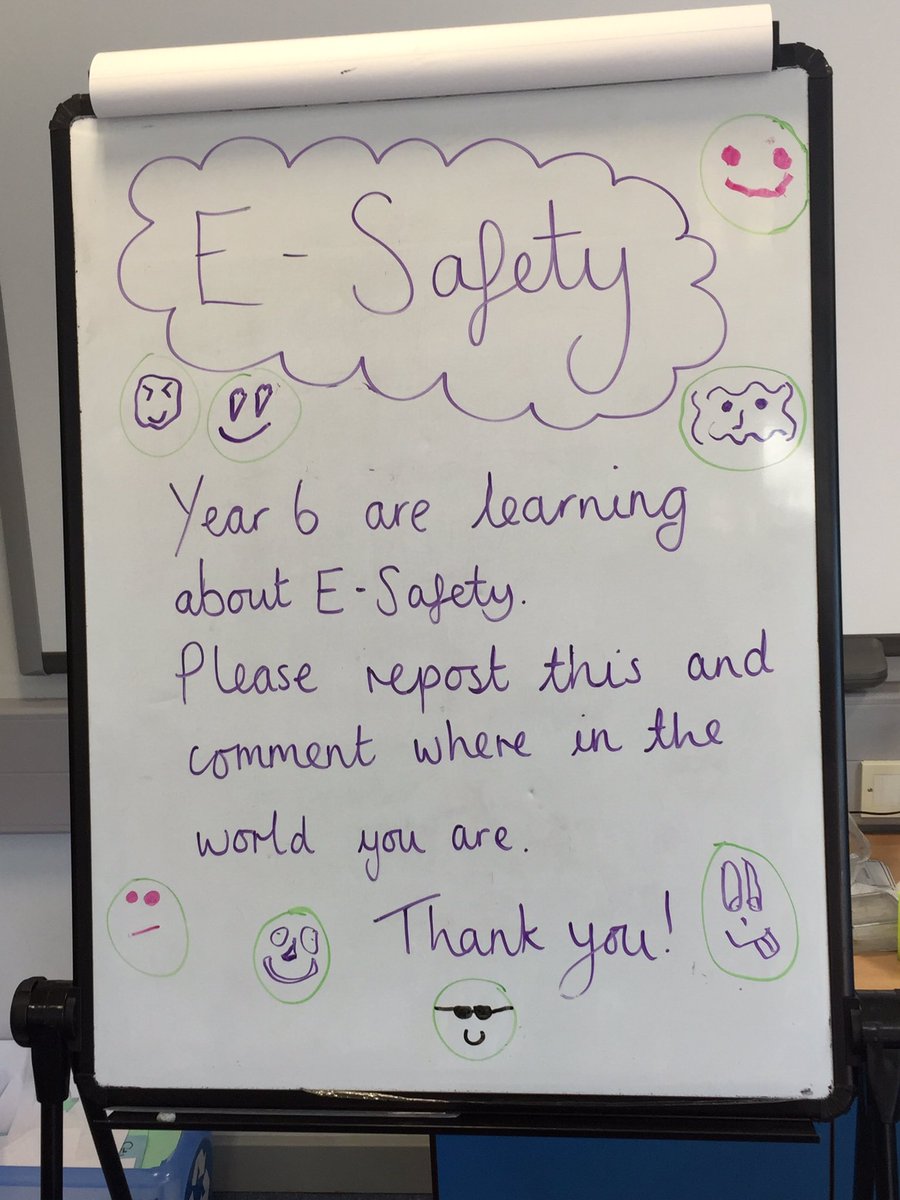 E-Safety
Year 6 are learning
about E-Safety.
Please repost this and
comment where in the
world you are.
Thank you!